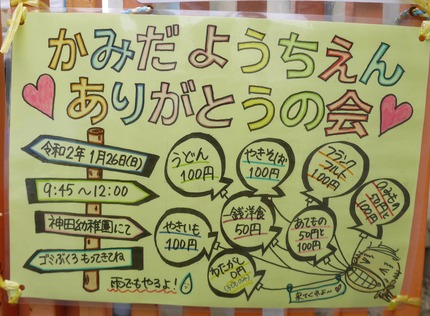 かみだようちえん
ありがとうの会
令和2年 1月26日(日)
9:45～12:00
神田幼稚園にて
ゴミぶくろ もってきてね
雨でもやるよ!
うどん
100円
やきそば
100円
フランク
フルト
100円
のみもの
50円と
100円
やきいも
100円
銭洋食
50円
あてもの
50円と
100円
わたがし
0円
来てくれよ〜